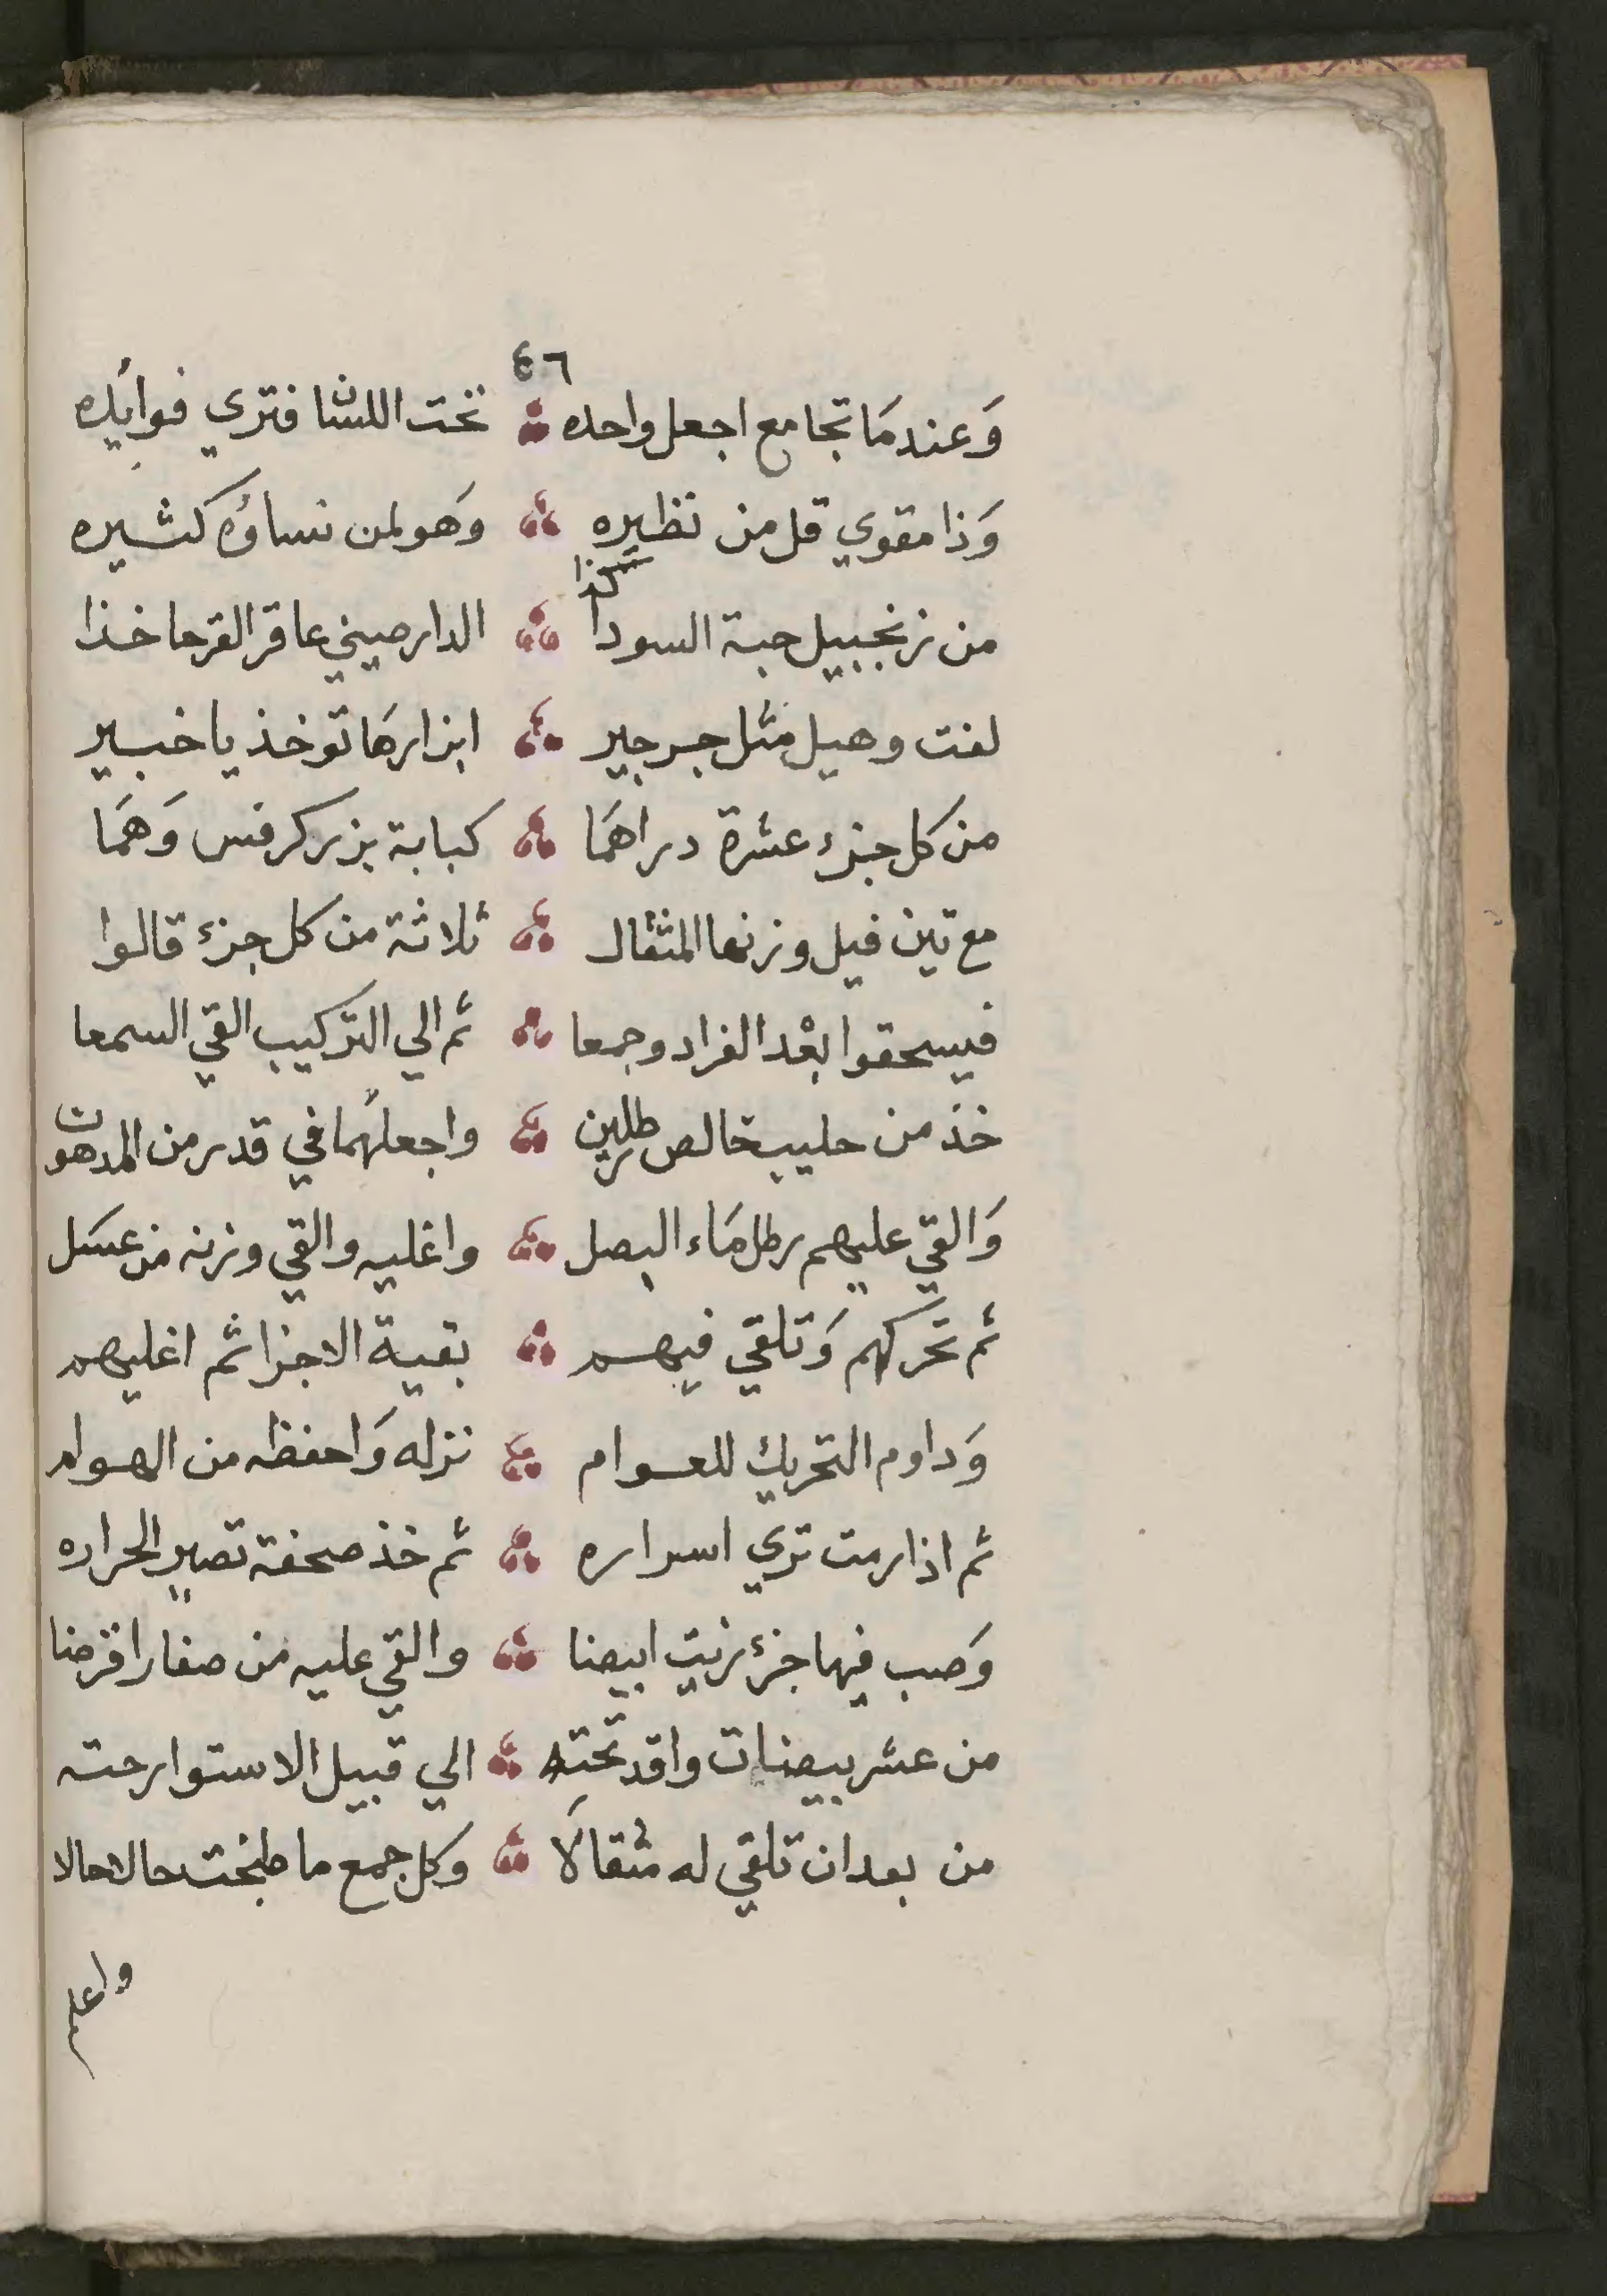 ٤٦
وَعندمَا تجامع اجعل واحده تحت اللسان فتري فوائده
وَذا مقوي قل من نظيره وَهو لمن نساؤه كثيره
من زنجبيل حبة السودا كذا الدارصيني عاقر القرحا خذا
لفت وهيل مثل جرجير ابزارهَا توخذ يا خبير
من كل جزء عشرة دراهمَا كبابة بزر كرفس وَهمَا
مع تين فيل وزنها المثقال ثلاثة من كل جزء قالوا
فيسحقوا بعْد الفراد وجمعا ثم الي التركيب القي السمعا
خذ من حليب خالص رطلين واجعلهما في قدر من المدهون
وَالقي عليهم رطل مَاء البصل واغليه والقي وزنه من عسَل
ثم تحركهم وَتلقي فيهم بقية الاجزا ثم اغليهم
وَداوم التحريك للعوام نزله وَاحفظه من الهوام
ثم اذا رمت تري اسراره ثم خذ صحفة تصير الحراره
وَصب فيها جزء زيت ابيضا والقي عليه من صفار اقرضا
من عشر بيضات واقد تحته الي قبيل الاستوا رحته
من بعد ان تلقي له مثقالَا وكل جمع ما طبخت حالا حالا
واعلم